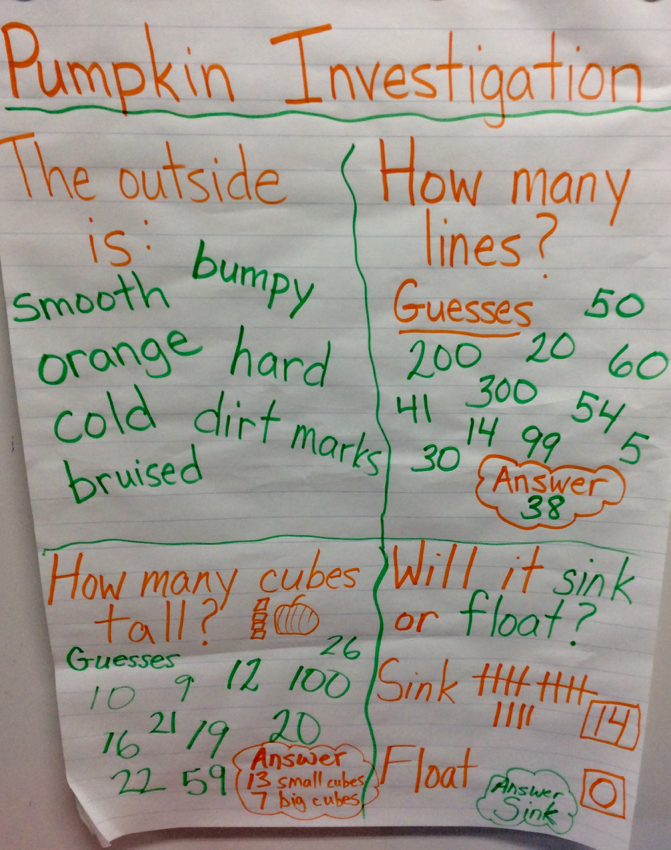 Pumpkin Investigation
The outside
is:
bumpy
smooth
orange hard
cold dirt marks
bruised
How many
lines?
Guesses 50
200 20 60
300
41 54
14 99 5
30
Answer
38
How many cubes
tall?
Guesses 26
10 9 12 100
16 21 19 20
22 59
Answer
13 small cubes
7 big cubes
Will it sink
or float?
Sink
14
Float
0
Answer
Sink